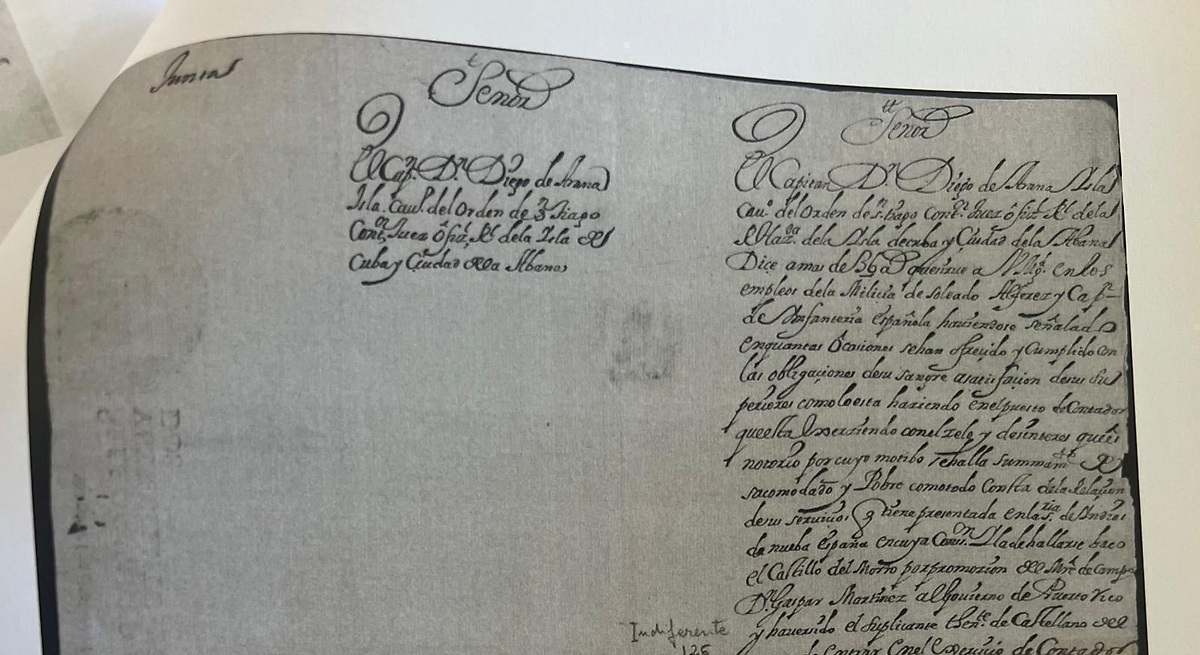 Juntas
Señor
El Capn. Dn. Diego de Arana
Isla. Cauo. del Orden de Stiago
Contor. Juez ofizl. Rl. dela Isla de
Cuba y Ciudad dela Abana
Señor
El Capitan Dn. Diego de Arana Isla
Cauo. del Orden de Sntiago Contor. Juez ofizl. Rl. dela
Rl Hazda. dela Isla de cuba y Ciudad dela Abana
Dice a mas de 36 as que sirue a V. Mgd. en los
empleos dela Milicia de soldado Alferez y Capn
de Infanteria española hauiendose señalado
en quantas Ocasiones sehan ofrecido y Cumplido con
las obligaciones desu sangre a satisfacion desus su
periores como lo esta haziendo en el puesto de Contador
que esta Exerziendo con el zelo y desinteres que es
notorio por cuyo motibo se halla summamte De
sacomodado y Pobre como todo Consta dela Relacion
desus seruicios q tiene presentada en la sria. de Indias
de nueba españa en cuya Consn. Ila de hallarse baco
el Castillo del Morro por promozion del Mre. de Campo
Dn. Gaspar Martinez al Gouierno de Puerto Rico
y hauerido el suplicante thente. de Castellano del
Indiferente
125
de entrar en el Exerzicio de Contador